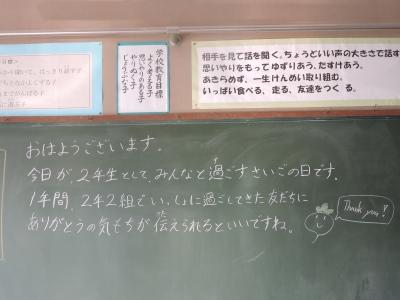 相手を見て話を聞く。ちょうどいい声の大きさで話す
思いやりをもって ゆずりあう、たすけあう。
あきらめず、一生けんめい取り組む。
いっぱい食べる、走る、友達をつくる。
学校教育目標
よく考える子
思いやりのある子
やりぬく子
じょうぶな子
おはようございます。
今日が、2年生として、みんなと過ごすさいごの日です。
1年間、2年2組でいっしょに過ごしてきた友だちに
ありがとうの気もちが伝えられるといいですね。
Thank you!